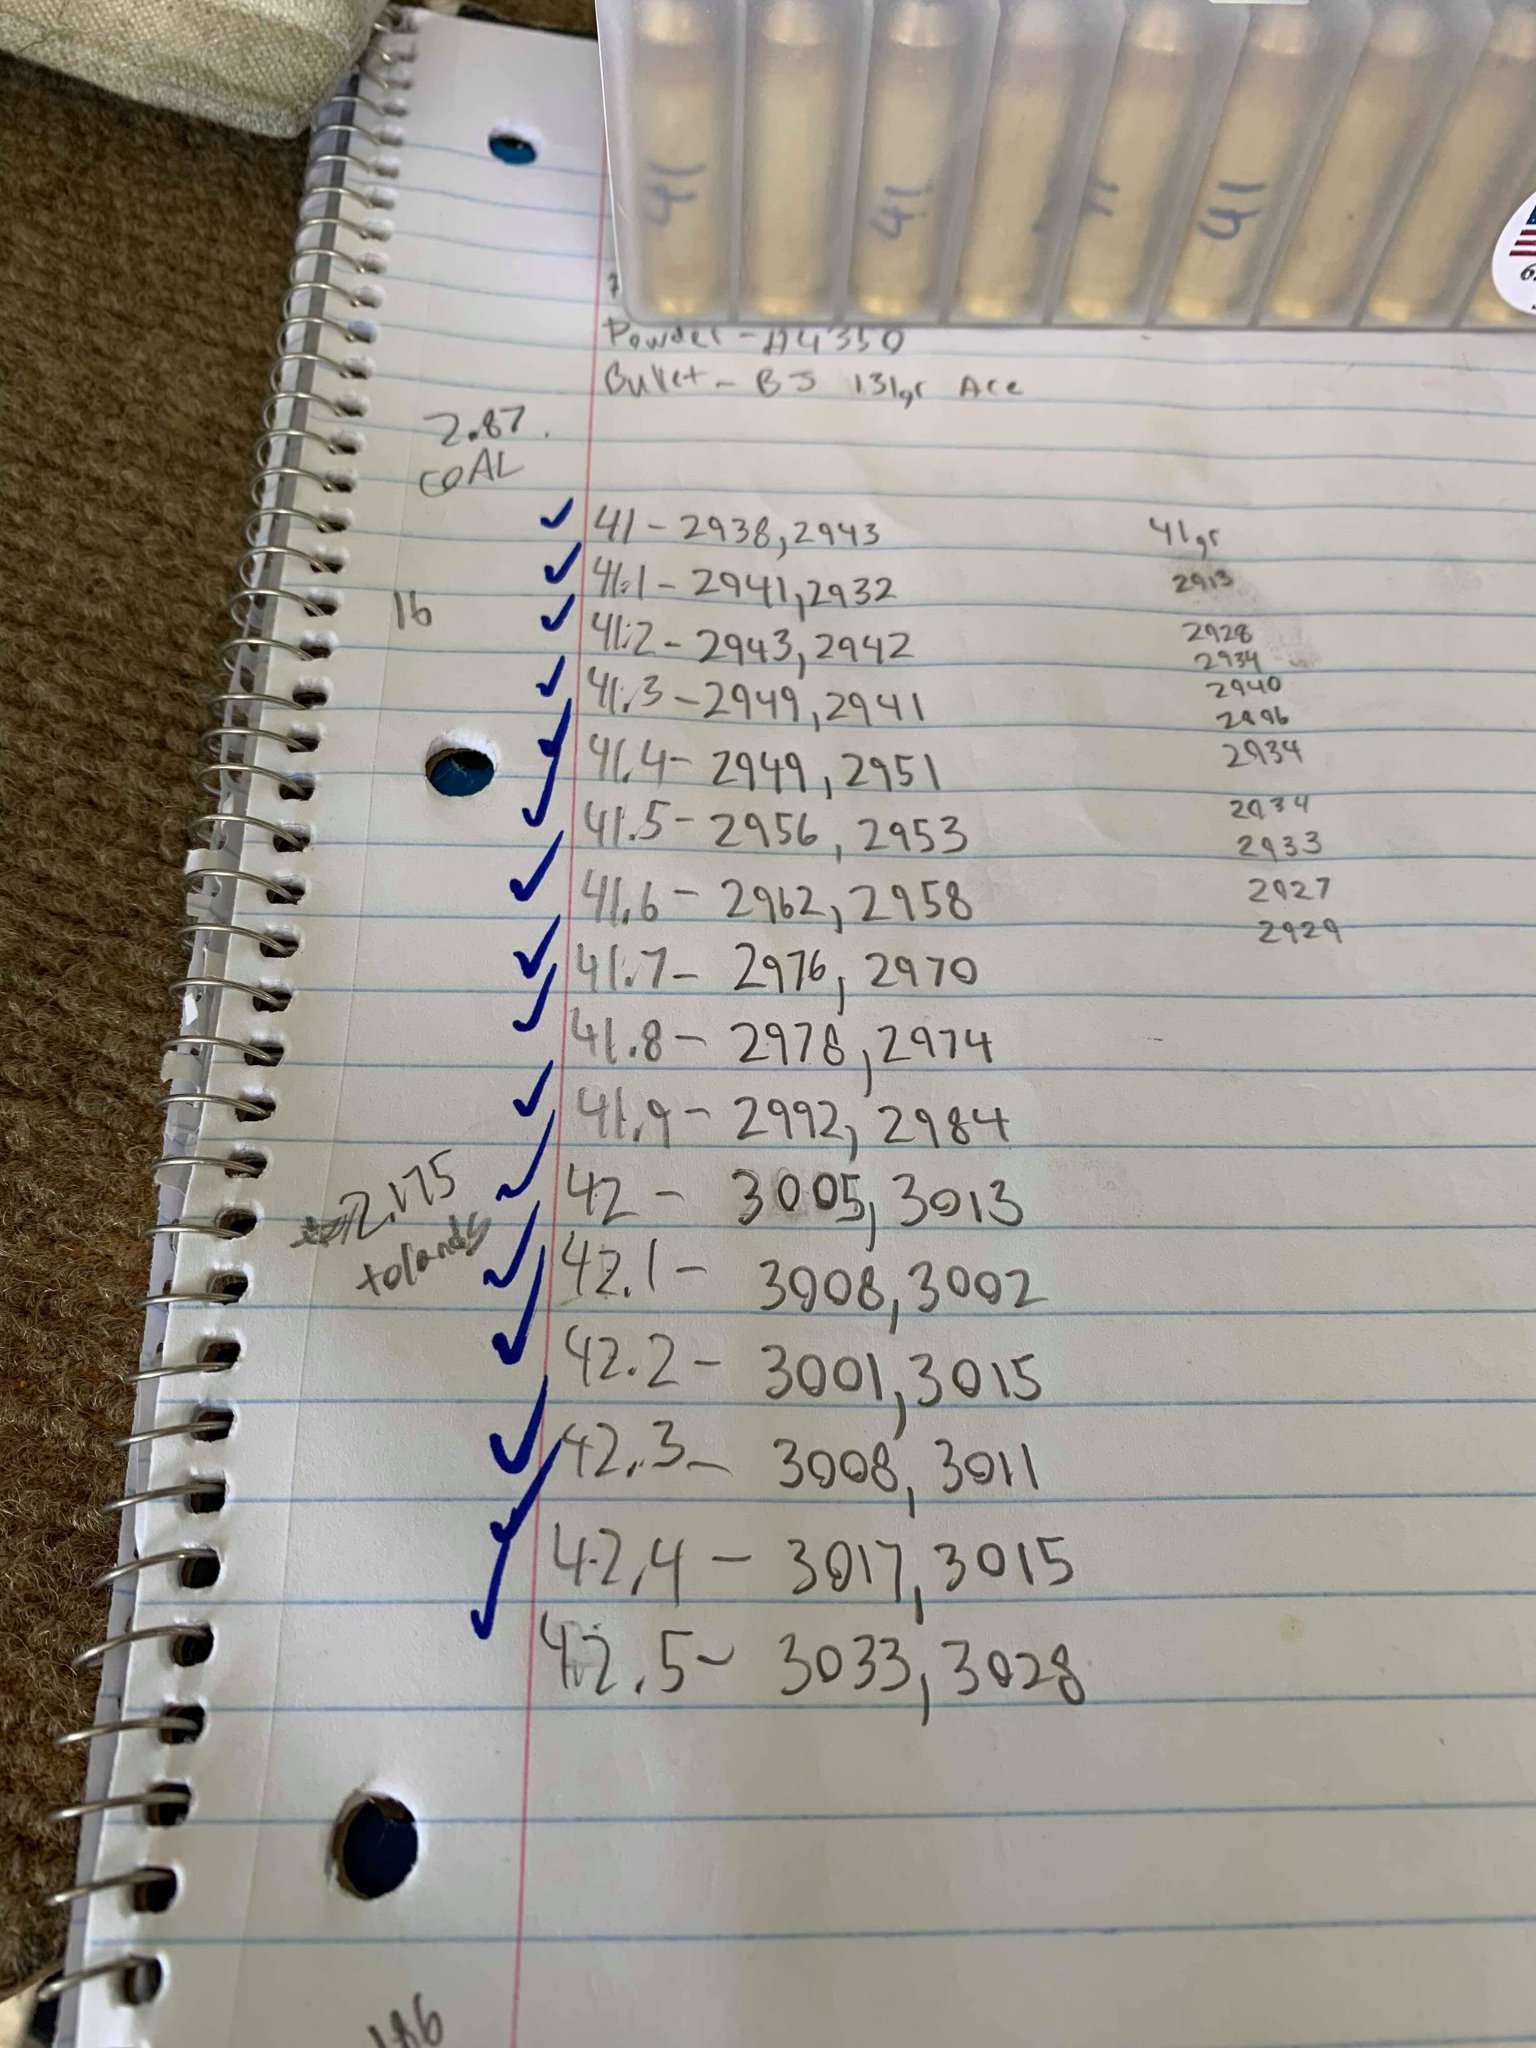 41 41 41 41
Powder - H4350
Bullet - BJ 131gr Ace
2.87
COAL
41 - 2938, 2943
41.1 - 2941, 2932
16
41.2 - 2943, 2942
41.3 - 2949, 2941
41.4 - 2949, 2951
41.5 - 2956, 2953
41.6 - 2962, 2958
41.7 - 2976, 2970
41.8 - 2978, 2974
41.9 - 2992, 2984
42 - 3005, 3013
2.175
to lands
42.1 - 3008, 3002
42.2 - 3001, 3015
42.3 - 3008, 3011
42.4 - 3017, 3015
42.5 - 3033, 3028
41gr
2913
2928
2934
2940
2934
2934
2933
2927
2929